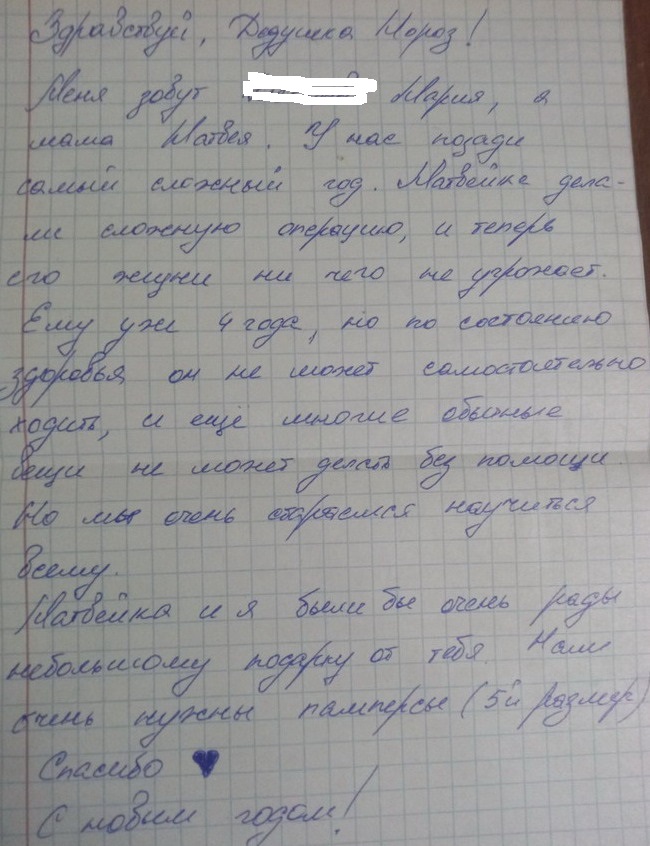 Здравствуй, Дедушка Мороз!
Меня зовут Мария, я
мама Матвея. У нас позади
самый сложный год. Матвейке дела-
ли сложную операцию, и теперь
его жизни ни чего не угрожает.
Ему уже 4 года, но по состоянию
здоровья он не может самостоятельно
ходить, и ещё многие обычные
вещи не может делать без помощи.
Но мы очень стараемся научиться
всему.
Матвейка и я были бы очень рады
небольшому подарку от тебя. Нам
очень нужны памперсы (5й размер)
Спасибо ♥
С новым годом!